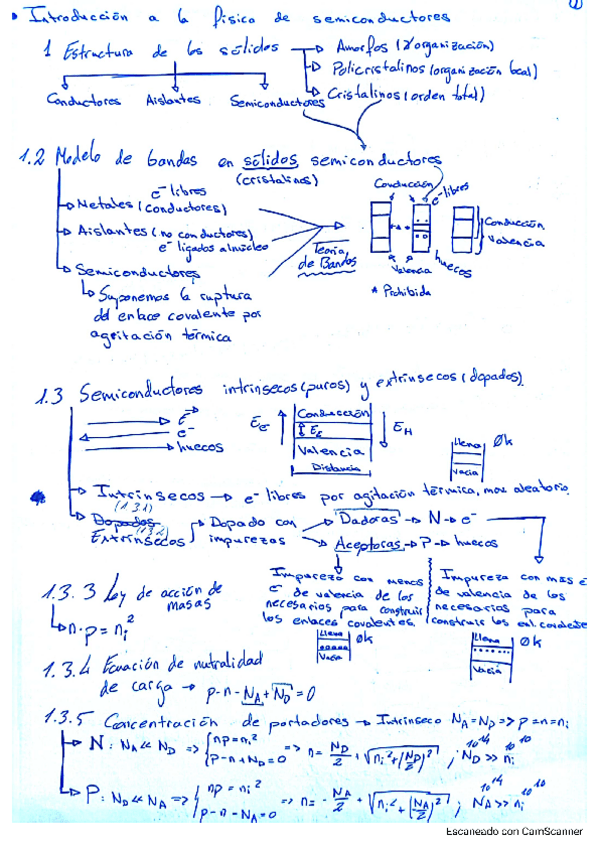 ①
• Introducción a la física de semiconductores
1 Estructura de los sólidos → Amorfos (x organización)
→ Policristalinos (organización local)
→ Cristalinos (orden total)
Conductores Aislantes Semiconductores
1.2 Modelo de bandas en sólidos semiconductores
(cristalinos)
e⁻ libres
→ Metales (conductores)
→ Aislantes (no conductores)
e⁻ ligados al núcleo
→ Semiconductores
↳ Suponemos la ruptura
del enlace covalente por
agitación térmica
Teoría
de Bandas
Conducción
e⁻ libres
Valencia
huecos
* Prohibida
Conducción
Valencia
1.3 Semiconductores intrínsecos (puros) y extrínsecos (dopados)
e⁻
huecos
Conducción
Valencia
Distancia
E_H
Llena 0k
Vacía
→ Intrínsecos → e⁻ libres por agitación térmica, mov aleatorio.
(1.3.1)
→ Dopados
Extrínsecos → Dopado con
impurezas
→ Dadoras → N → e⁻
→ Aceptoras → P → huecos
Impureza con menos
e⁻ de valencia de los
necesarios para construir
los enlaces covalentes.
Llena 0k
Vacía
Impureza con más e
de valencia de los
necesarios para
construir los enl. covalente
Llena 0k
Vacía
1.3.3 Ley de acción de
masas
↳ n·p = nᵢ²
1.3.4 Ecuación de nutralidad
de carga → p - n - N_A + N_D = 0
1.3.5 Concentración de portadores → Intrínseco N_A = N_D => p = n = nᵢ
→ N: N_A << N_D => { np = nᵢ² ; p - n + N_D = 0 => n = N_D/2 + √(nᵢ² + (N_D/2)²) ; N_D >> nᵢ 10¹⁴ 10¹⁰
→ P: N_D << N_A => { np = nᵢ² ; p - n - N_A = 0 => n = - N_A/2 + √(nᵢ² + (N_A/2)²) ; N_A >> nᵢ 10¹⁴ 10¹⁰
Escaneado con CamScanner